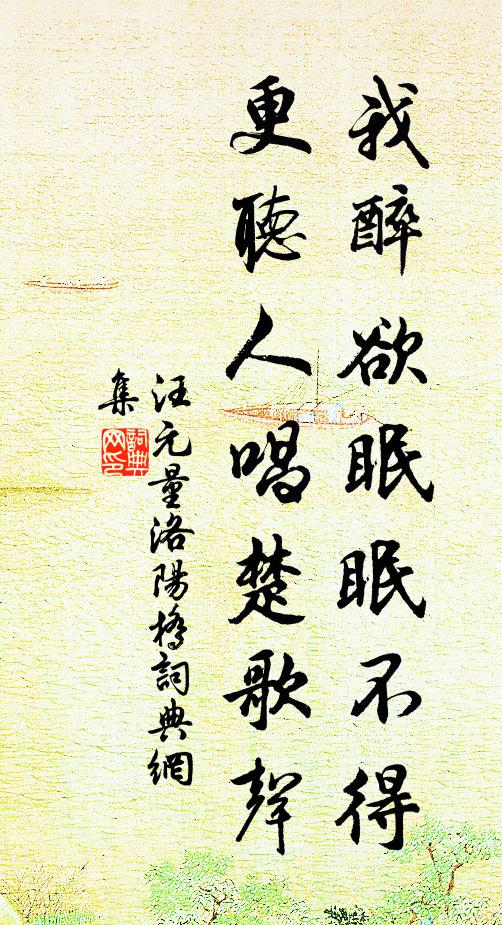 我醉欲眠眠不得
更聽人唱楚歌聲
汪元量洛陽橋詞典網
集
詞典
网印